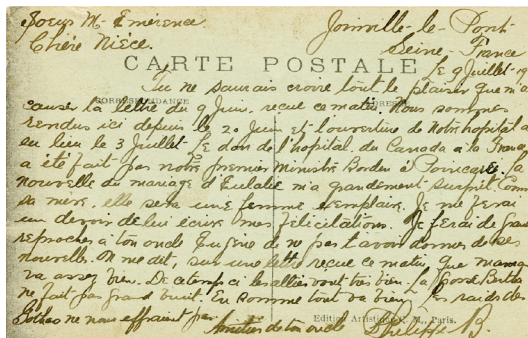 Soeur M- Emérence
Chère Nièce.
Joinville-le-Pont
Seine,- France
CARTE POSTALE
Le 9 Juillet-19
Tu ne saurais croire tout le plaisir que m'a
CORRESPONDANCE
causer ta lettre du 9 Juin, recue ce matin. Nous sommes
rendus ici depuis le 20 Juin et l'ouverture de notre hopital a
eu lieu le 3 Juillet. Le don de l'hopital, du Canada à la France
a été fait par notre premier Ministre Borden à Poincaré. La
nouvelle du mariage d'Eulalie m'a grandement surprit. Comme
sa mère, elle sera une femme exemplaire. Je me ferai
un devoir de lui écrire mes félicitations. Je ferai de grands
reproches à ton oncle Eugène de ne pas t'avoir donner de ses
nouvelle. On me dit, sur une lettre recue ce matin, que maman
va assez bien. De ce temps ci les alliés vont très bien. La Grosse Bertha
ne fait pas grand bruit. En somme tout va bien. Les raids des
Gothas ne nous effraient pas.
Amitiés de ton oncle Philippe-B.
Edition Artistique M., Paris.